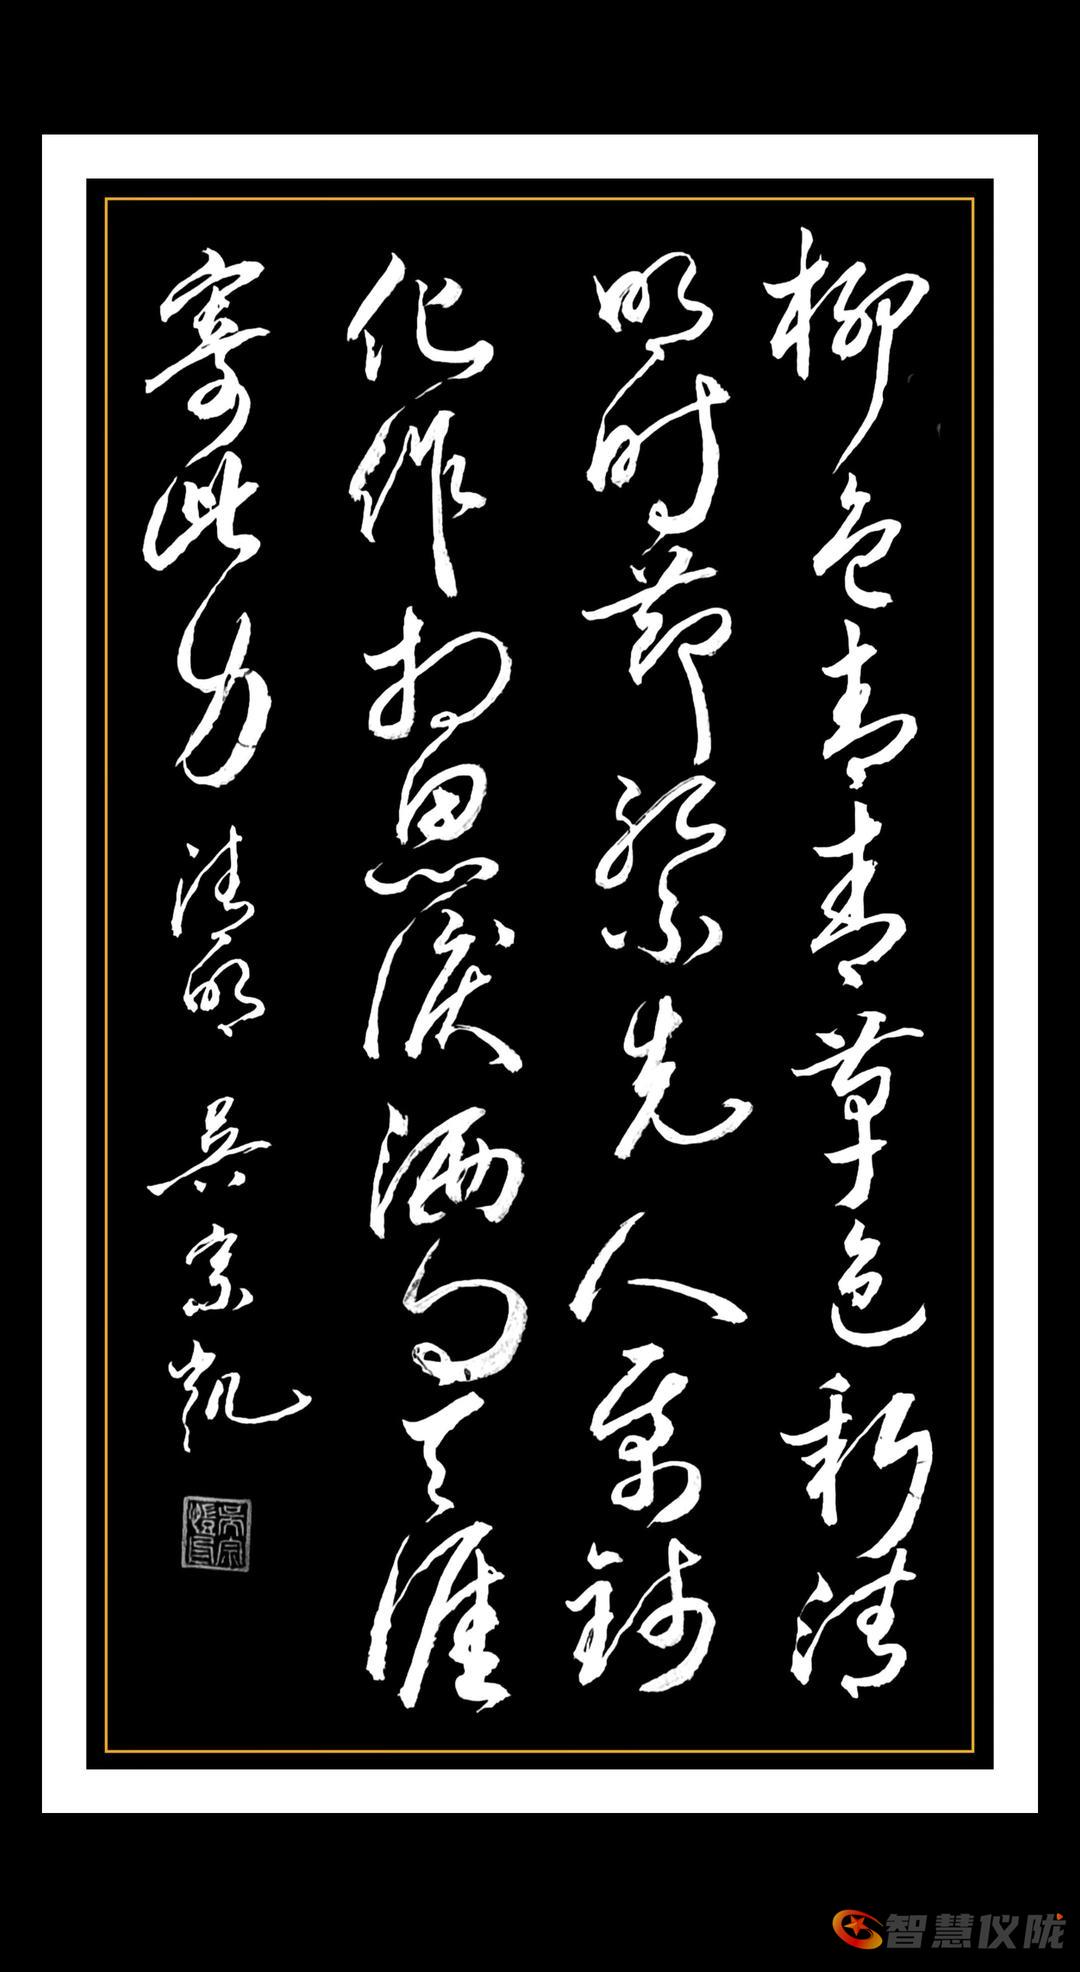 柳色青青草色新清
明时节祭先人钱
化作相思泪洒向天涯
寄此身 清明 吴宗凯
智慧仪陇